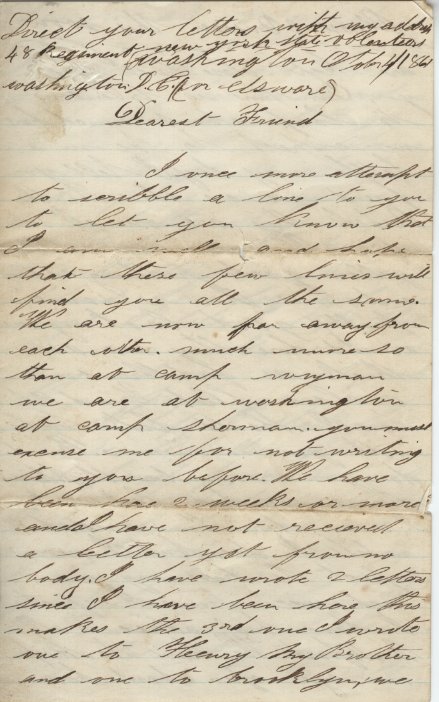 Direct your letters with my address
48 Regiment new york state volunteers
washington D.C. (or elsware)
Washington Octobr 4/1861
Dearest Friend
I once more attempt
to scribble a line to you
to let you know that
I am well and hope
that these few lines will
find you all the same.
We are now far away from
each other. much more so
than at camp wyman
we are at washington
at camp sherman. you must
excuse me for not writing
to you before. We have
been here 2 weeks or more
and I have not recieved
a letter yet from no
body. I have wrote 2 letters
since I have been here this
makes the 3rd one I write
one to Heenry my Brother
and one to brooklyn, we